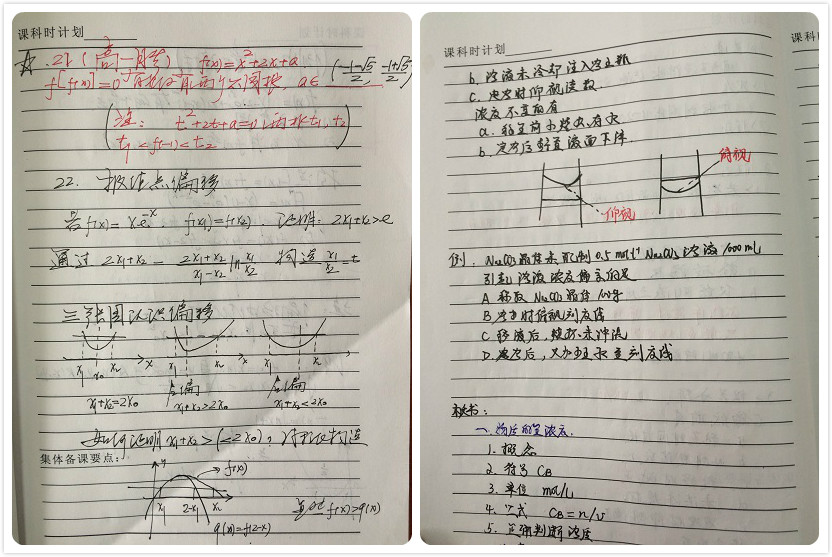 课科时计划
☆.21(高一月考) f(x)=x²+2x+a
f[f(x)]=0 有且仅有两个不同根, a∈ (-1-√5/2, -1+√5/2)
(注: t²+2t+a=0 两根t₁,t₂
t₁<f(-1)<t₂)
22. 极值点偏移
若f(x)=xe⁻ˣ f(x₁)=f(x₂). 证明: 2x₁+x₂>e
通过 2x₁+x₂ = 2x₁+x₂/x₁-x₂ ln x₁/x₂ 构造 x₁/x₂=t
三张图认识偏移
x₁ x₀ x₂ x
x₁ x₂ x
x₁ x₂
左偏
x₁+x₂=2x₀
x₁+x₂>2x₀
x₁+x₂<2x₀
如何证明 x₁+x₂>(<2x₀), 对称构造
集体备课要点:
y
f(x)
x₁ 2-x₁ x₂
f(x)>g(x)
g(x)=f(2-x)
课科时计划
b. 溶液未冷却注入容量瓶
c. 定容时仰视读数
浓度不变的有
b. 定容后液面下降
俯视
仰视
例. Na₂CO₃晶体来配制0.5mol·L⁻¹ Na₂CO₃溶液1000mL
引起溶液浓度偏高的是
A 称取Na₂CO₃晶体100g
B 定容时俯视刻度线
C. 移液后, 烧杯未冲洗
D. 定容后, 又加水至刻度线
板书:
一. 物质的量浓度.
1. 概念
2. 符号 CB
3. 单位 mol/L
4. 公式 CB=n/v
5. 正确判断浓度
课科